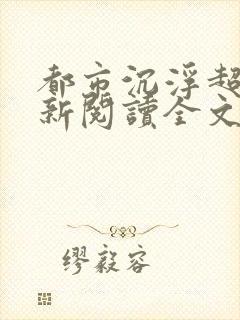 都市沉浮超
新閱讀全文
繆毅容